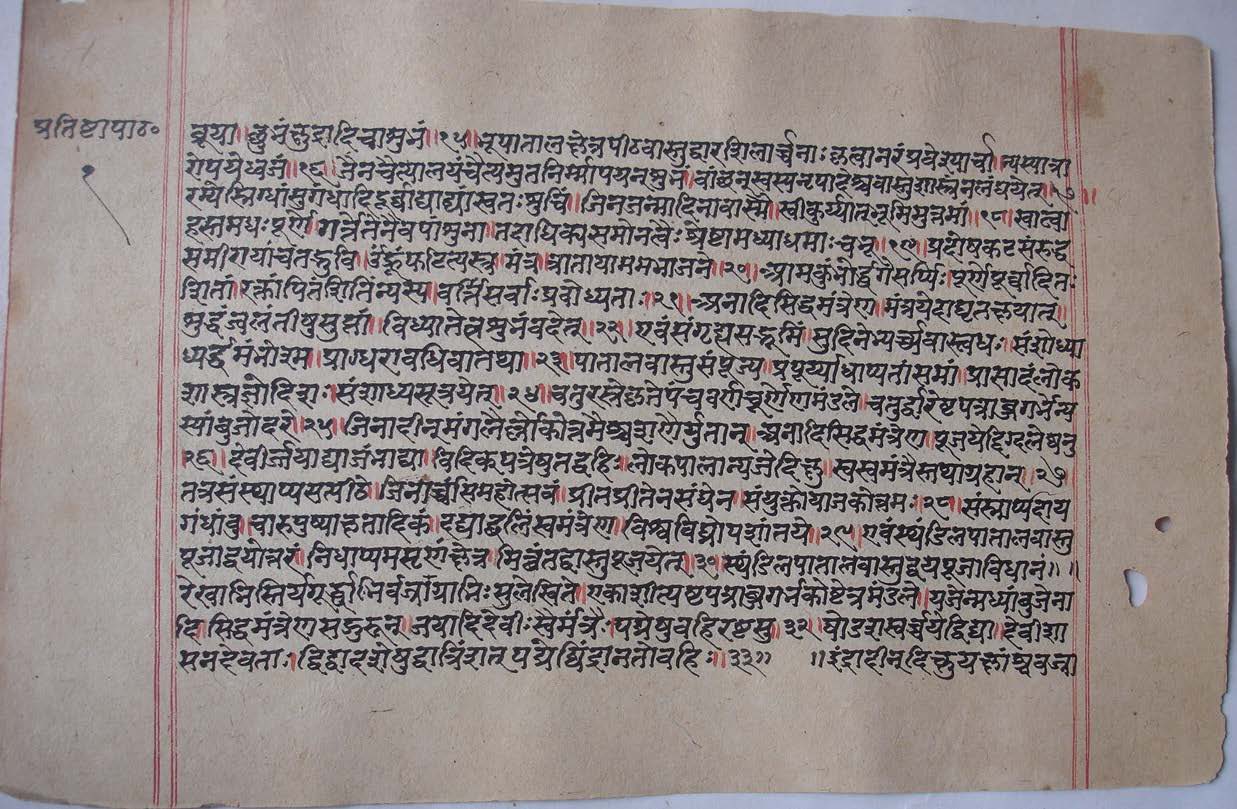 प्रतिष्टापाठ०
१
ब्रूया॥ ॥१५॥नृपातालक्षेत्रपीठवास्तुद्वारशिलार्च्चनाः
रोपयेध्वजं॥१६॥जैनचैत्यालयंचैत्यमुतनिर्म्मापयन्शुभं॥वांछन्स्वस्यनृपादेश्चवास्तुशास्त्रंनलंघयेत्॥१७॥
रम्येस्निग्धांसुगंधादिदूर्व्वाद्याढ्यांस्वतःशुचिं॥जिनजन्मादिनावास्मै॥स्वीकुर्य्यात्भूमिमुत्तमां॥१८॥खात्वा
हस्तमधःपूर्णे॥गर्त्तेतेनैवपांशुना॥तदाधिक्यसमोनत्वेःश्रेष्टामध्याधमाःचभू॥१९॥प्रदोषेकटसंरुद्ध
समीरायांचतद्भुवि॥ॐहूंफटित्यस्त्र॥मंत्रत्रातायामामभाजने॥२०॥आमकुंभोर्द्ध्वगेसर्प्पिः॥पूर्णेपूर्व्वादितः
शितां॥रक्तांपितांशितिंन्यस्य॥वर्त्तिसर्वाःप्रबोध्यताः॥२१॥अनादिसिद्धमंत्रेण॥मंत्रयेदाघृतक्षयात्॥
शुद्धंज्वलंतीषुसुप्तां॥विध्यातेत्वशुभंवदेत्॥२२॥एवंसंगृह्यसद्भूमिं॥सुदिनेभ्यर्च्चवास्त्वधः॥संशोध्या
ध्यर्द्धमंभोश्म॥प्राग्धरावधिवातथा॥२३॥पातालवास्तुसंपूज्य॥प्रपूर्य्याधाप्यतांसमां॥प्रासादंलोक
शास्त्रज्ञोदिशः॥संशाध्यसूत्रयेत्॥२४॥चतुरस्रेक्षतेपंचवर्णचूर्णेणमंडले॥चतुर्द्वारेष्टपत्राब्जगर्भेन्य
स्यांबुजोदरे॥२५॥जिनादीन्मंगलैर्ल्लोकोत्तमैश्चशरणैर्युतान्॥अनादिसिद्धमंत्रेण॥पूजयेद्दिग्दलेषनु
२६॥देवीर्जयाद्याजंभाद्या॥विदिक्पत्रेषुतद्वहिः॥लोकपालान्यजेद्दिक्षु॥स्वस्वमंत्रैस्तथाग्रहान्॥२७
तत्रसंस्थाप्यसत्पीठे॥जिनार्च्चासिमहोत्सवं॥प्रीतप्रीतेनसंघेन॥संयुक्तोयाजकोत्तमः॥२८॥संस्नाप्यर्हाय
गंधांबु॥चारुपुष्पाक्षतादिकं॥दद्याद्बलिंस्वमंत्रेण॥विश्वविघ्नोपशांतये॥२९॥एवंस्थंडिलपातालवास्तु
पूजाद्वयोत्तरं॥विधाप्यमसृणंक्षेत्र॥मिच्छंतद्वास्तुपूजयेत्॥३०॥स्थंडिलपातालवास्तुद्वयपूजाविधानं॥॥
रेखाभिस्तिर्यगूर्द्ध्वाभिर्वज्राग्राभिःसुलेखिते॥एकाशीत्यष्टपत्राब्जगर्भकोष्टेत्रमंडले॥यजेन्मध्यांबुजेना
दि॥सिद्धमंत्रेणसद्गुरून्॥जयादिदेवीः॥स्वैर्मंत्रैः॥पद्मेषुबहिरष्टसु॥३२॥षोडशस्वर्च्चयेद्विद्या॥देवीशा
सनदेवताः॥द्विर्द्वादशेषुद्वात्रिंशत्पद्मेष्विंद्रानतोबहिः॥३३॥ ॥इंद्रादीन्दिक्षुयक्षांश्चवज्रा